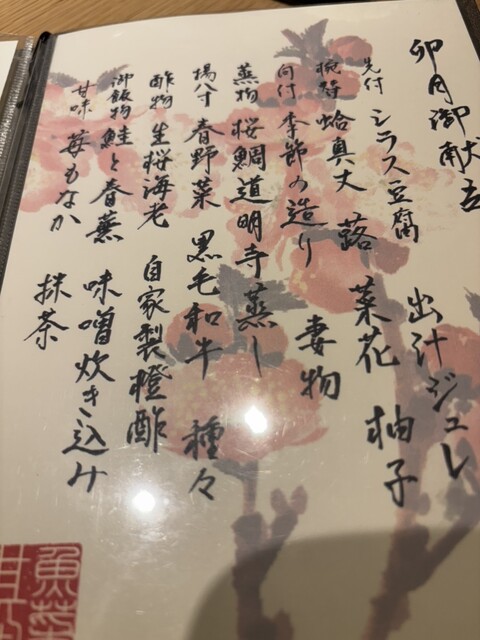 卯月御献立
先付 シラス豆腐 出汁ジュレ
椀替 蛤真丈 蕗 菜花 柚子
向付 季節の造り 妻物
蒸物 桜鯛道明寺蒸し
揚八寸 春野菜 黒毛和牛 種々
酢物 生桜海老 自家製橙酢
御飯物 鮭と春 味噌炊き込み
甘味 苺もなか 抹茶
魚菜